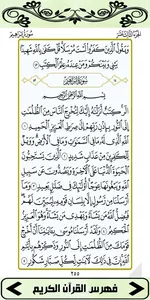 الجزء الثالث عشر سورة إبراهيم
وَيَقُولُ الَّذِينَ كَفَرُوا لَسْتَ مُرْسَلًا قُلْ كَفَىٰ بِاللَّهِ شَهِيدًا
بَيْنِي وَبَيْنَكُمْ وَمَنْ عِندَهُ عِلْمُ الْكِتَابِ ٤٣
سورة إبراهيم
بِسْمِ اللَّهِ الرَّحْمَٰنِ الرَّحِيمِ
الر كِتَابٌ أَنزَلْنَاهُ إِلَيْكَ لِتُخْرِجَ النَّاسَ مِنَ الظُّلُمَاتِ
إِلَى النُّورِ بِإِذْنِ رَبِّهِمْ إِلَىٰ صِرَاطِ الْعَزِيزِ الْحَمِيدِ ١
اللَّهِ الَّذِي لَهُ مَا فِي السَّمَاوَاتِ وَمَا فِي الْأَرْضِ وَوَيْلٌ
لِّلْكَافِرِينَ مِنْ عَذَابٍ شَدِيدٍ ٢ الَّذِينَ يَسْتَحِبُّونَ
الْحَيَاةَ الدُّنْيَا عَلَى الْآخِرَةِ وَيَصُدُّونَ عَن سَبِيلِ اللَّهِ
وَيَبْغُونَهَا عِوَجًا أُولَٰئِكَ فِي ضَلَالٍ بَعِيدٍ ٣ وَمَا أَرْسَلْنَا
مِن رَّسُولٍ إِلَّا بِلِسَانِ قَوْمِهِ لِيُبَيِّنَ لَهُمْ فَيُضِلُّ اللَّهُ
مَن يَشَاءُ وَيَهْدِي مَن يَشَاءُ وَهُوَ الْعَزِيزُ الْحَكِيمُ ٤
وَلَقَدْ أَرْسَلْنَا مُوسَىٰ بِآيَاتِنَا أَنْ أَخْرِجْ قَوْمَكَ
مِنَ الظُّلُمَاتِ إِلَى النُّورِ وَذَكِّرْهُم بِأَيَّامِ
اللَّهِ إِنَّ فِي ذَٰلِكَ لَآيَاتٍ لِّكُلِّ صَبَّارٍ شَكُورٍ ٥
٢٥٥
فهرس القرآن الكريم